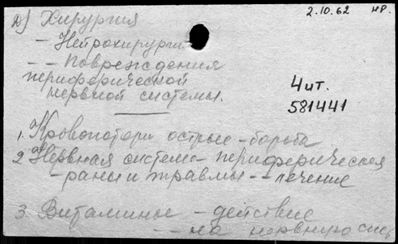 2.10.62 нр.
а) Хирургия
– Нейрохирургия
– – Повреждения
периферической
нервной системы.
4 ит.
581441
1. Кровопотери острые – борьба
2 Нервная система – периферическая
– раны и травмы – – лечение
3. Витамины – действие
– – на нервную сис